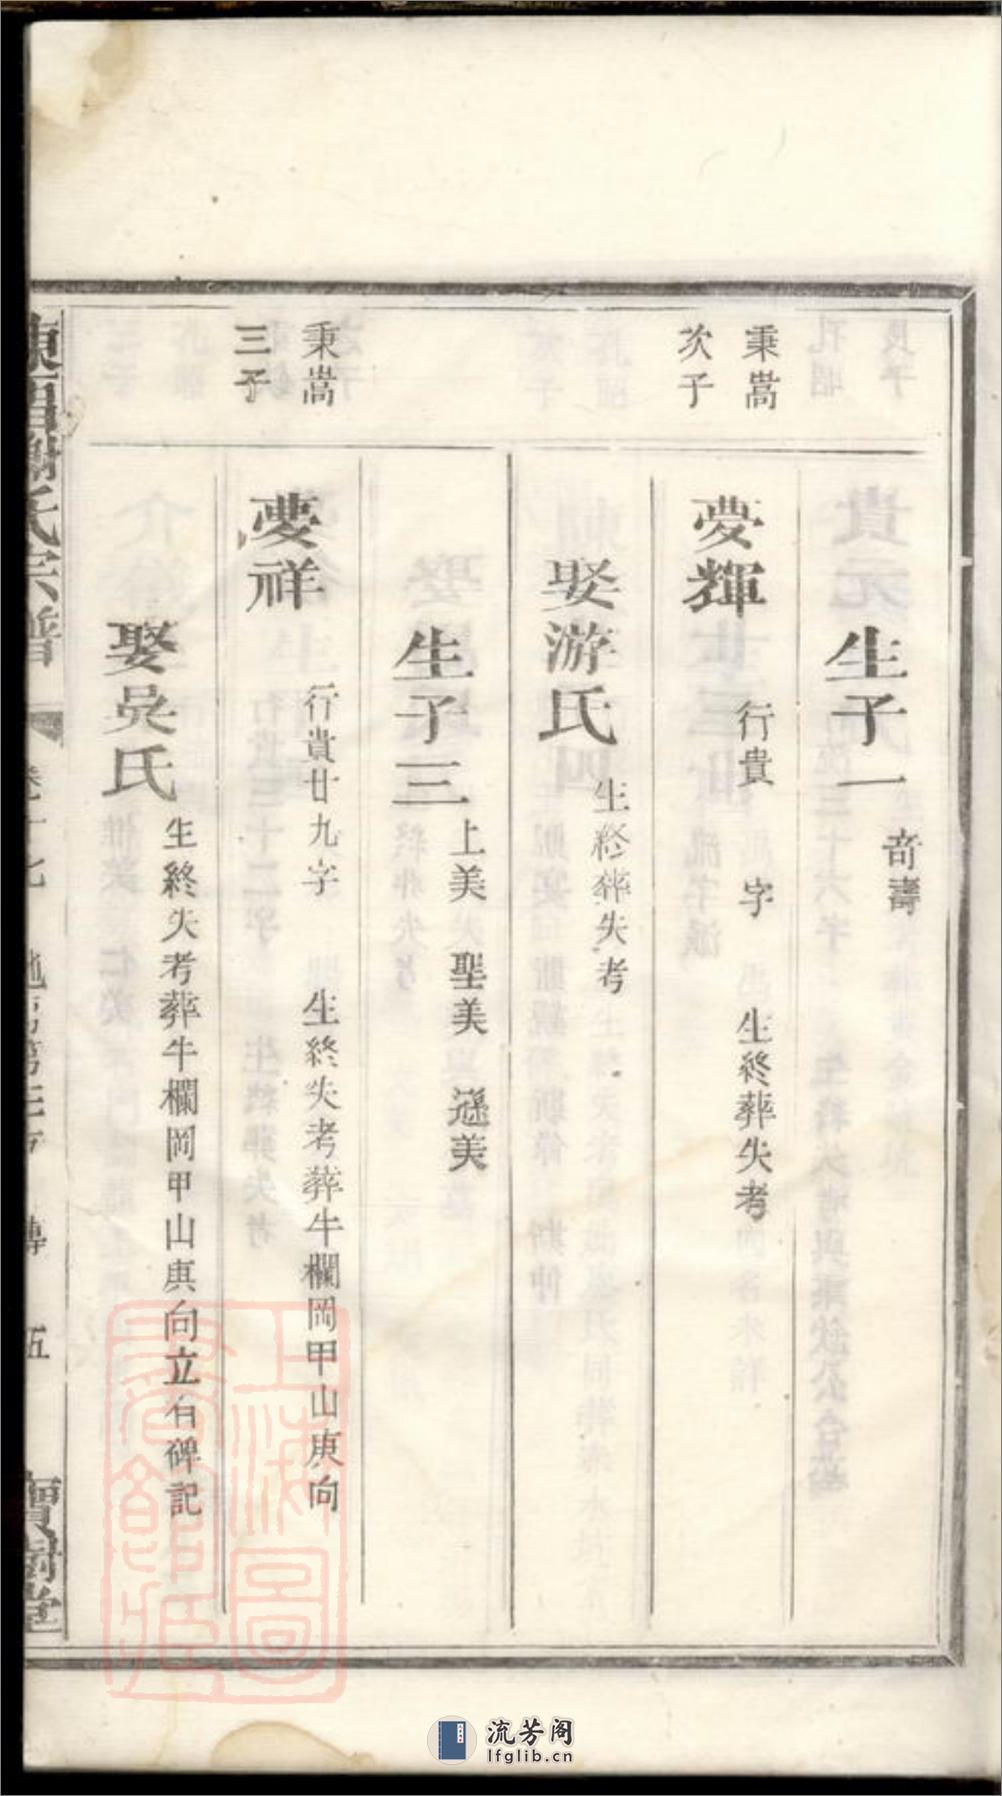 生子一 奇壽
秉嵩
次子
夢輝 行貴 字 生終葬失考
娶游氏 生終葬失考
生子三 上美 聖美 遜美
秉嵩
三子
夢祥 行貴廿九字 生終失考葬牛欄岡甲山庚向
娶吳氏 生終失考葬牛欄岡甲山庚向立石碑記
謝氏宗譜 卷十七 五 寶樹堂
上海圖書館藏
流芳阁
lfglib.cn